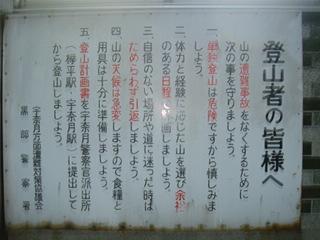 登山者の皆様へ
山の遭難事故をなくするために
次の事を守りましょう。
一、単独登山は危険ですから慎しみま
しょう。
二、体力と経験に応じた山を選び余裕
のある日程で計画しましょう。
三、自信のない場所や道に迷った時は
ためらわず引返しましょう。
四、山の天候は急変しますので食糧と
用具は十分に準備しましょう。
五、登山計画書を宇奈月警察官派出所
(欅平駅・宇奈月駅)に提出して
から登山しましょう。
宇奈月方面遭難対策協議会
黒部警察署